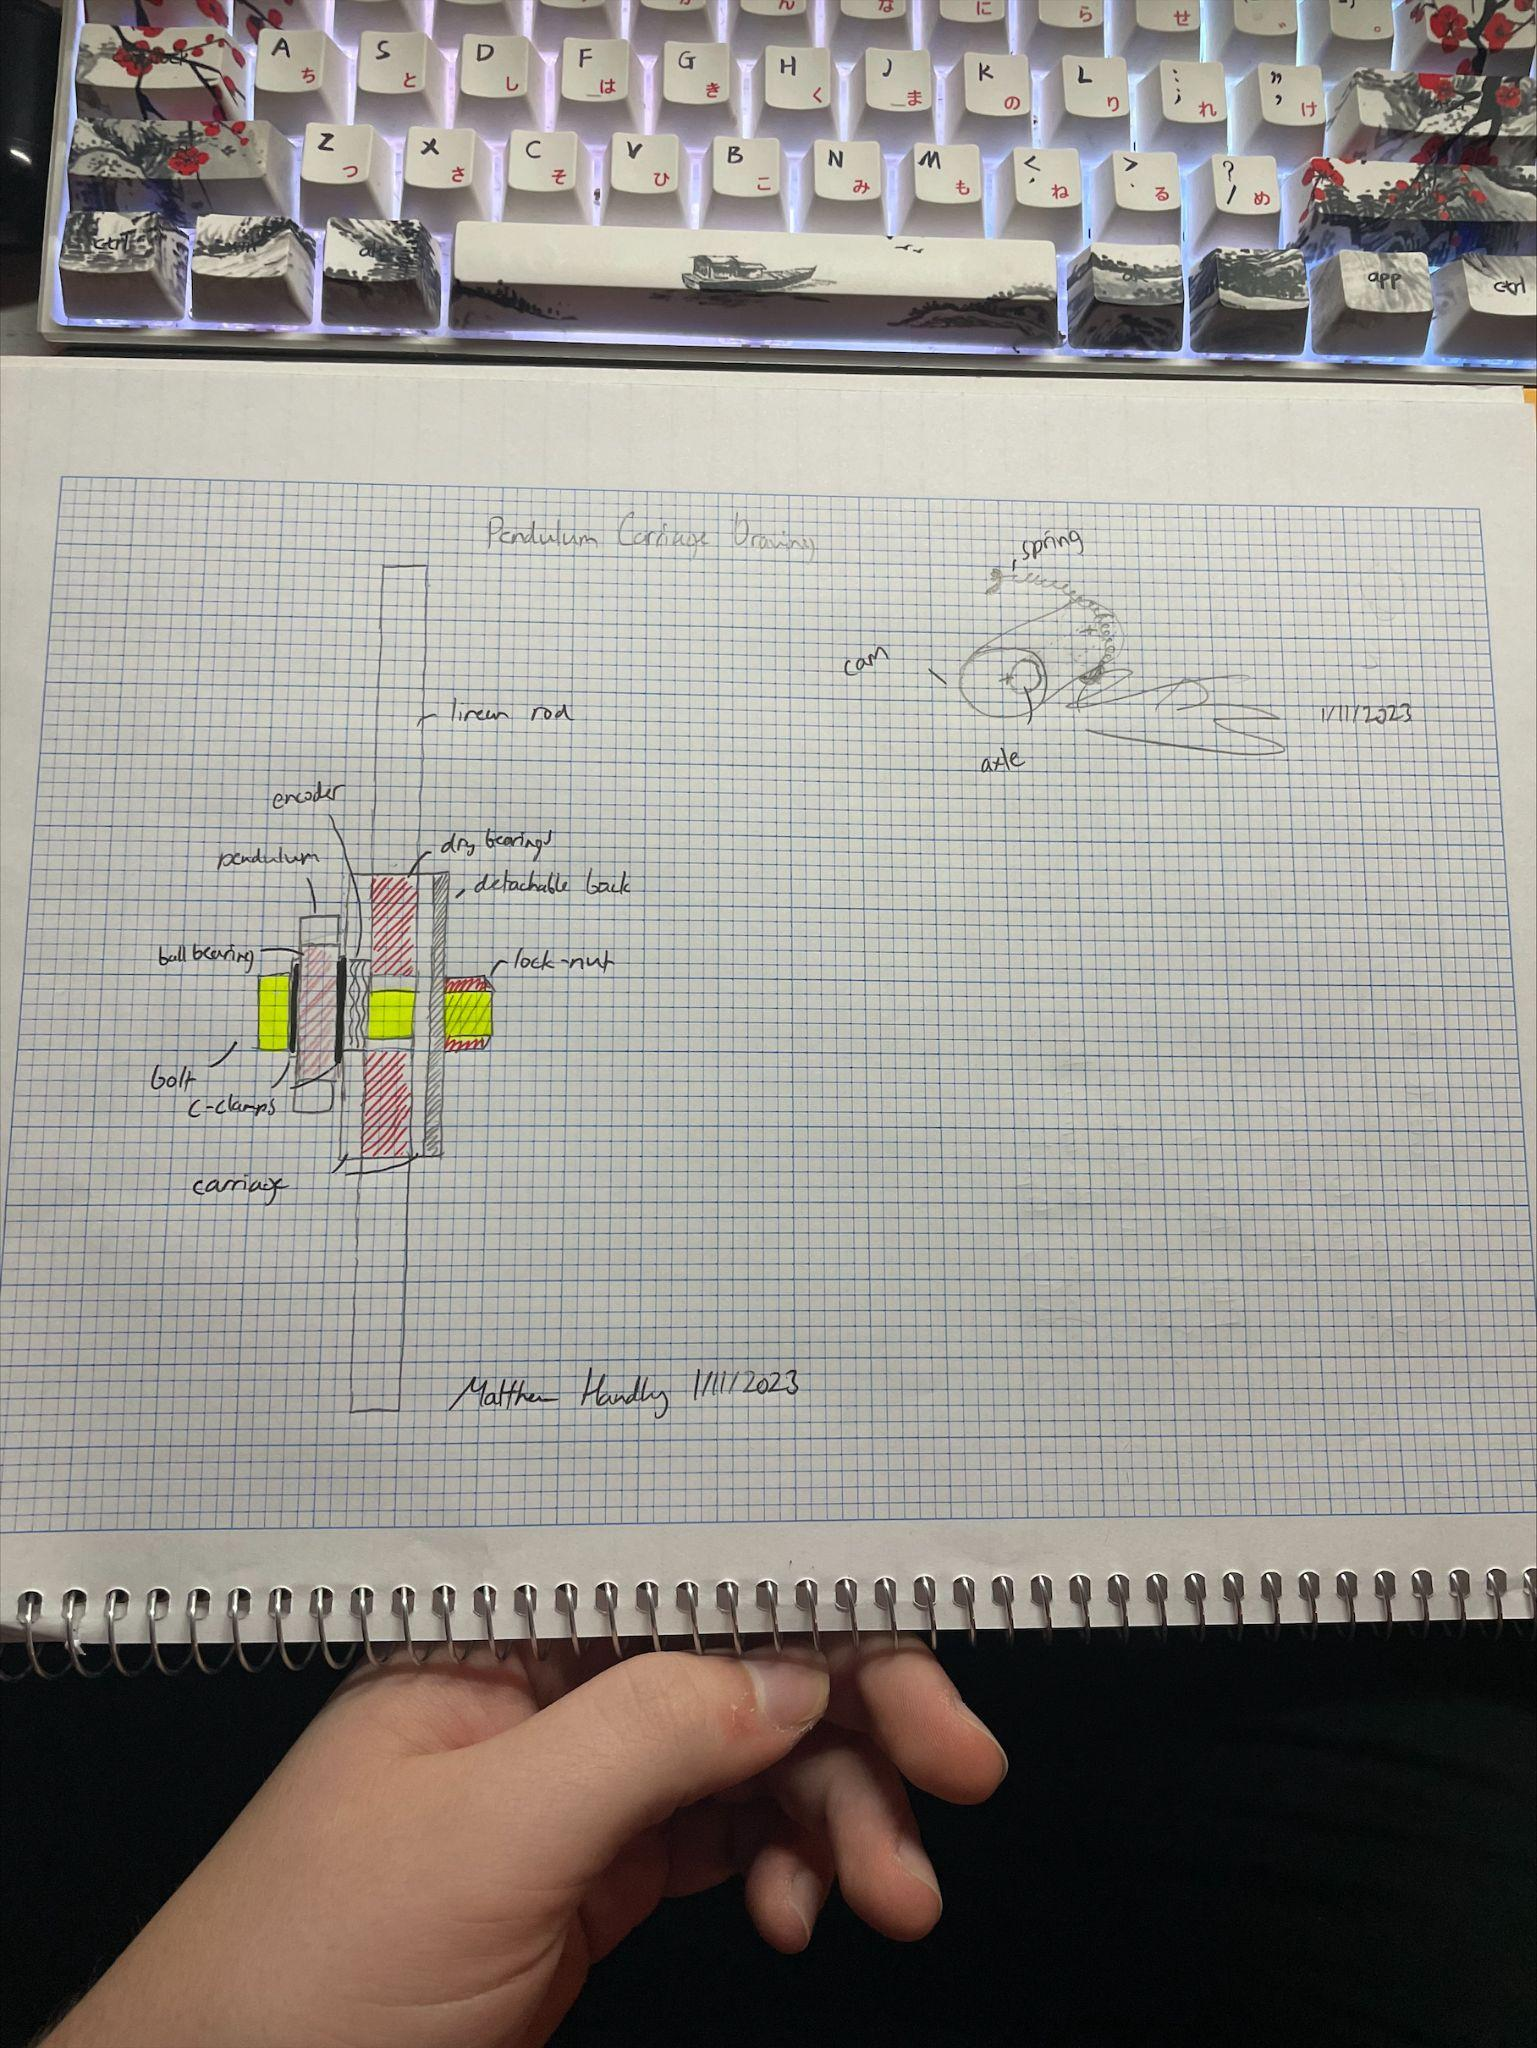 A ち S と D し F は G き H く J ま K の L り : ; れ " ' け
Z つ X さ C そ V ひ B こ N み M も < , ね > . る ? / め
ctrl win alt app ctrl
Pendulum Carriage Drawing
spring
cam
axle
1/11/2023
linear rod
encoder
dry bearings
pendulum
detachable back
ball bearing
lock-nut
bolt
C-clamps
carriage
Matthew Handly 1/11/2023